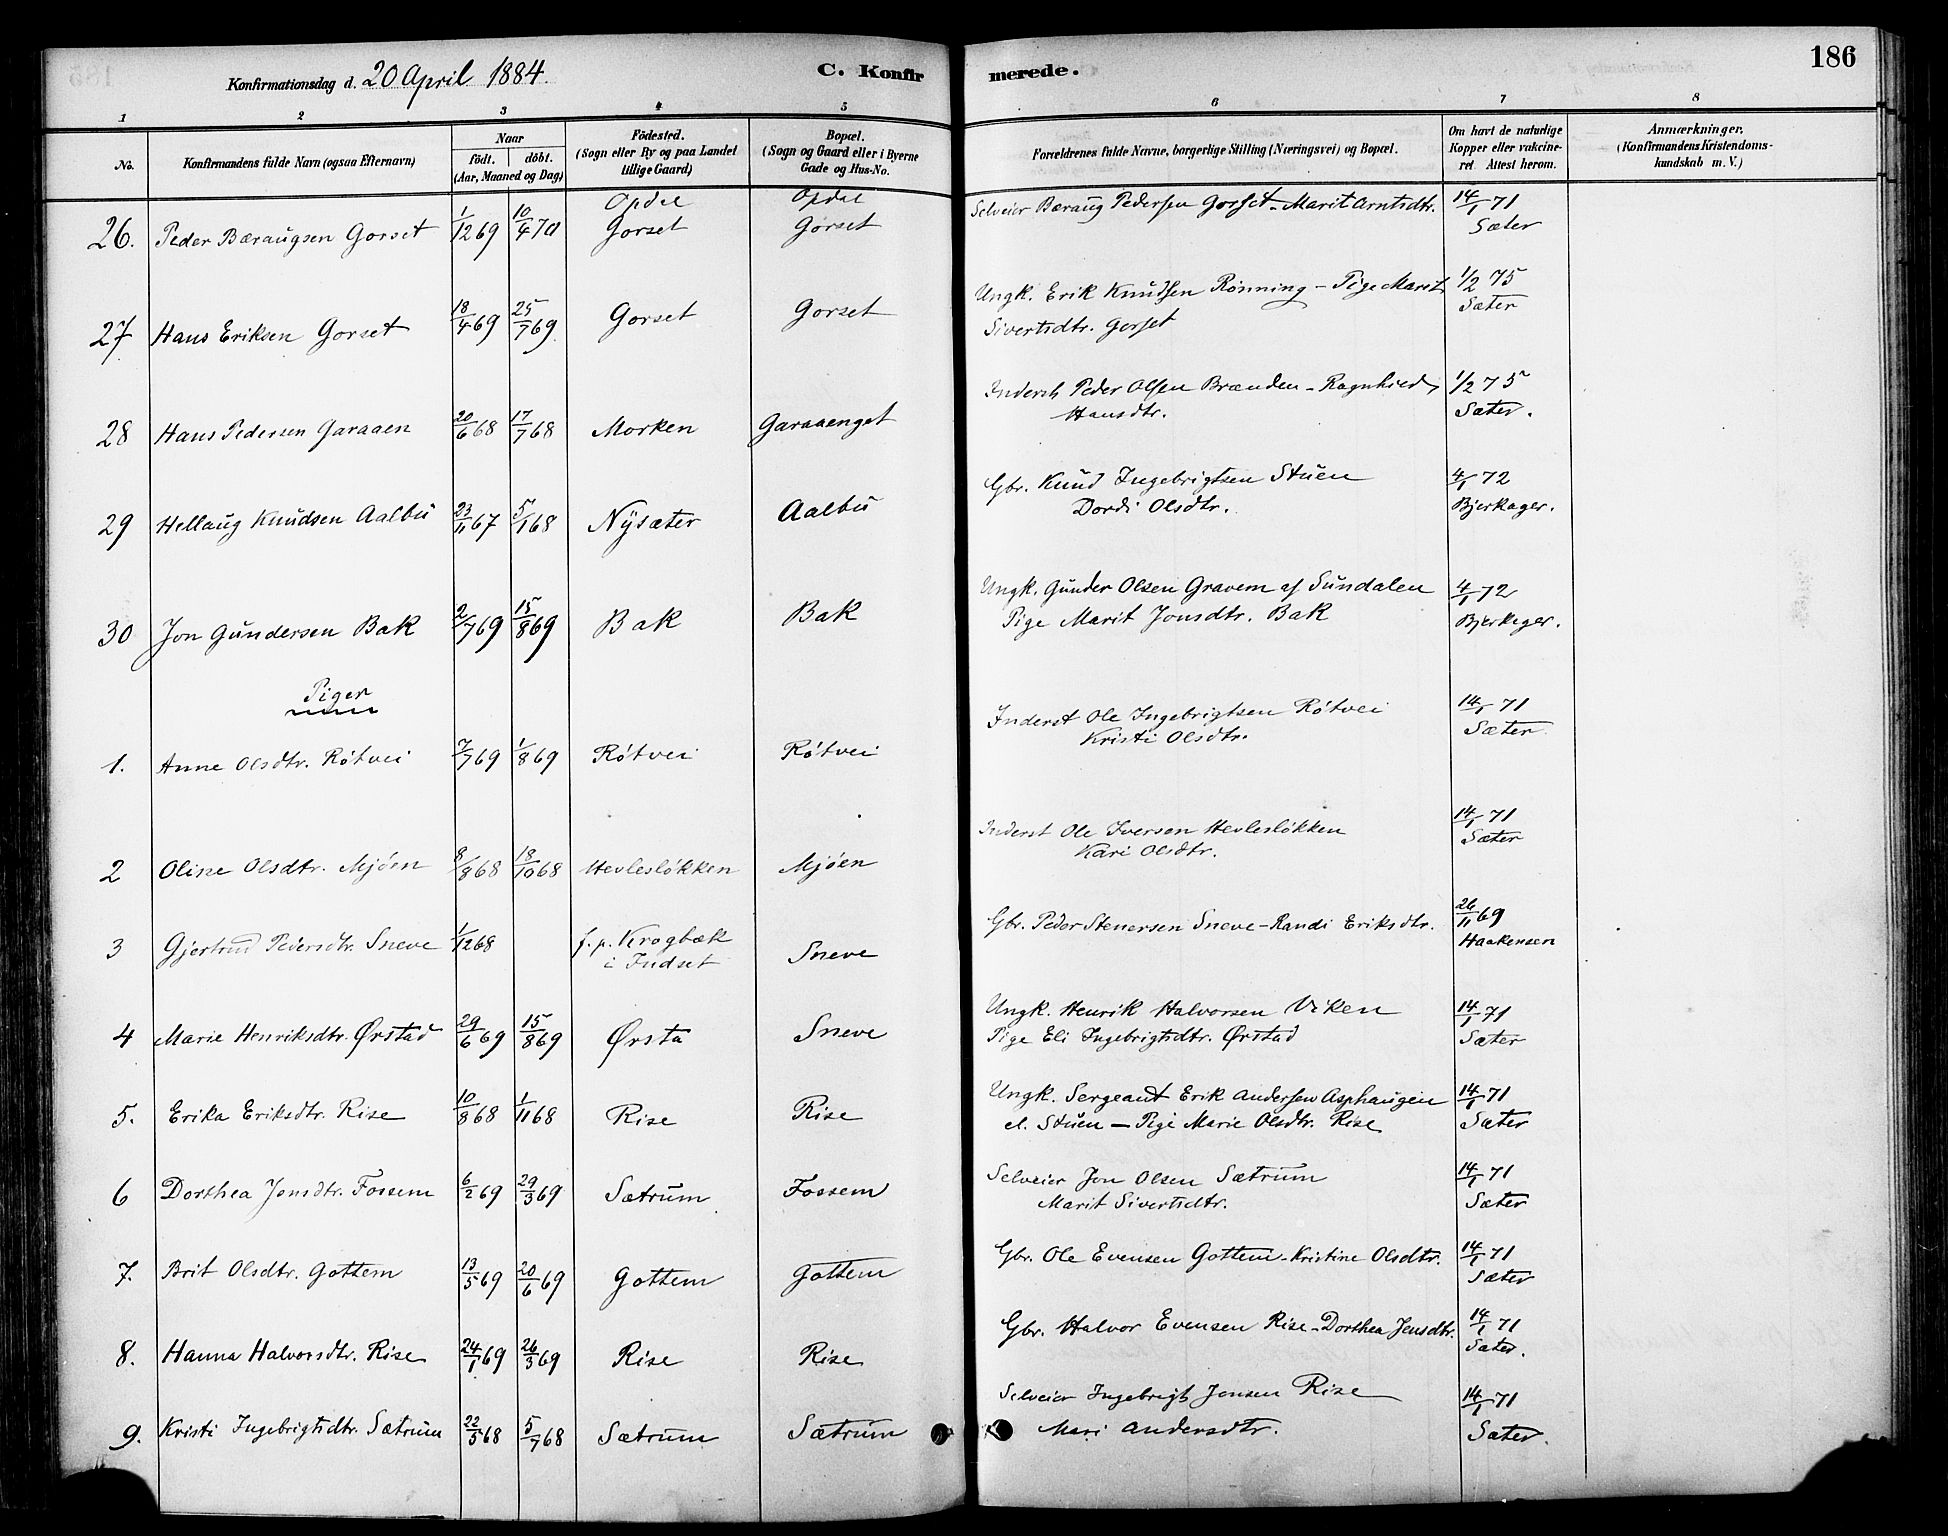 186
Konfirmationsdag d. 20 April 1884.
C. Konfirmerede.
1 2 3 4 5 6 7 8
No.
Konfirmandens fulde Navn (ogsaa Efternavn)
Naar
födt. döbt.
(Aar, Maaned og Dag)
Födested.
(Sogn eller By og paa Landet
tillige Gaard)
Bopæl.
(Sogn og Gaard eller i Byerne
Gade og Hus-No.
Forældrenes fulde Navne, borgerlige Stilling (Næringsvei) og Bopæl.
Om havt de naturlige
Kopper eller vakcine-
ret. Attest herom.
Anmærkninger.
(Konfirmandens Kristendoms-
kundskab m. V.)
Opdal Opdal
26. Peder Bæraugsen Gorset 1/12 69 10/4 70 Gorset Gorset Selveier Bæraug Pedersen Gorset - Marit Arntsdtr. 14/1 71
Sæter
27 Hans Eriksen Gorset 18/4 69 25/7 69 Gorset Gorset Ungk. Erik Knudsen Rönning - Pige Marit 1/2 75
Sivertsdtr. Gorset Sæter
28 Hans Pedersen Garaaen 20/6 68 17/7 68 Morken Garaaenget Inderst Peder Olsen Brænden - Ragnhild 1/2 75
Hansdtr. Sæter.
29 Hellaug Knudsen Aalbu 23/11 67 5/1 68 Nysæter Aalbu Gbr. Knud Ingebrigtsen Stuen 4/1 72
Dordi Olsdtr. Bjerkager.
30 Jon Gundersen Bak 2/7 69 15/8 69 Bak Bak Ungk. Gunder Olsen Gravem af Sundalen 4/1 72
Pige Marit Jonsdtr. Bak Bjerkager.
Piger
1. Anne Olsdtr. Rötvei 7/7 69 1/8 69 Rötvei Rötvei Inderst Ole Ingebrigtsen Rötvei 14/1 71
Kristi Olsdtr. Sæter
2 Oline Olsdtr. Mjöen 8/8 68 18/10 68 Hevleslökken Mjöen Inderst Ole Iversen Hevleslökken 14/1 71
Kari Olsdtr. Sæter
3 Gjertrud Pedersdtr. Sneve 1/12 68 f. p. Krogbæk Sneve Gbr. Peder Stenersen Sneve - Randi Eriksdtr. 26/11 69
i Indset Haakensen
4 Marie Henriksdtr. Ørstad 29/6 69 15/8 69 Ørsta Sneve Ungk. Henrik Halvorsen Viken 14/1 71
Pige Eli Ingebrigtsdtr. Ørstad Sæter
5. Erika Eriksdtr. Rise 10/8 68 1/11 68 Rise Rise Ungk. Sergeant Erik Andersen Asphaugen 14/1 71
el. Stuen - Pige Marie Olsdtr. Rise Sæter
6 Dorthea Jonsdtr. Fossem 6/2 69 29/3 69 Sætrum Fossem Selveier Jon Olsen Sætrum 14/1 71
Marit Sivertsdtr. Sæter
7. Brit Olsdtr. Gottem 13/5 69 20/6 69 Gottem Gottem Gbr. Ole Evensen Gottem - Kristine Olsdtr. 14/1 71
Sæter
8. Hanna Halvorsdtr. Rise 24/1 69 26/3 69 Rise Rise Gbr. Halvor Evensen Rise - Dorthea Jensdtr. 14/1 71
Sæter.
9. Kristi Ingebrigtsdtr. Sætrum 22/5 68 5/7 68 Sætrum Sætrum Selveier Ingebrigt Jonsen Rise 14/1 71
Mari Andersdtr. Sæter.